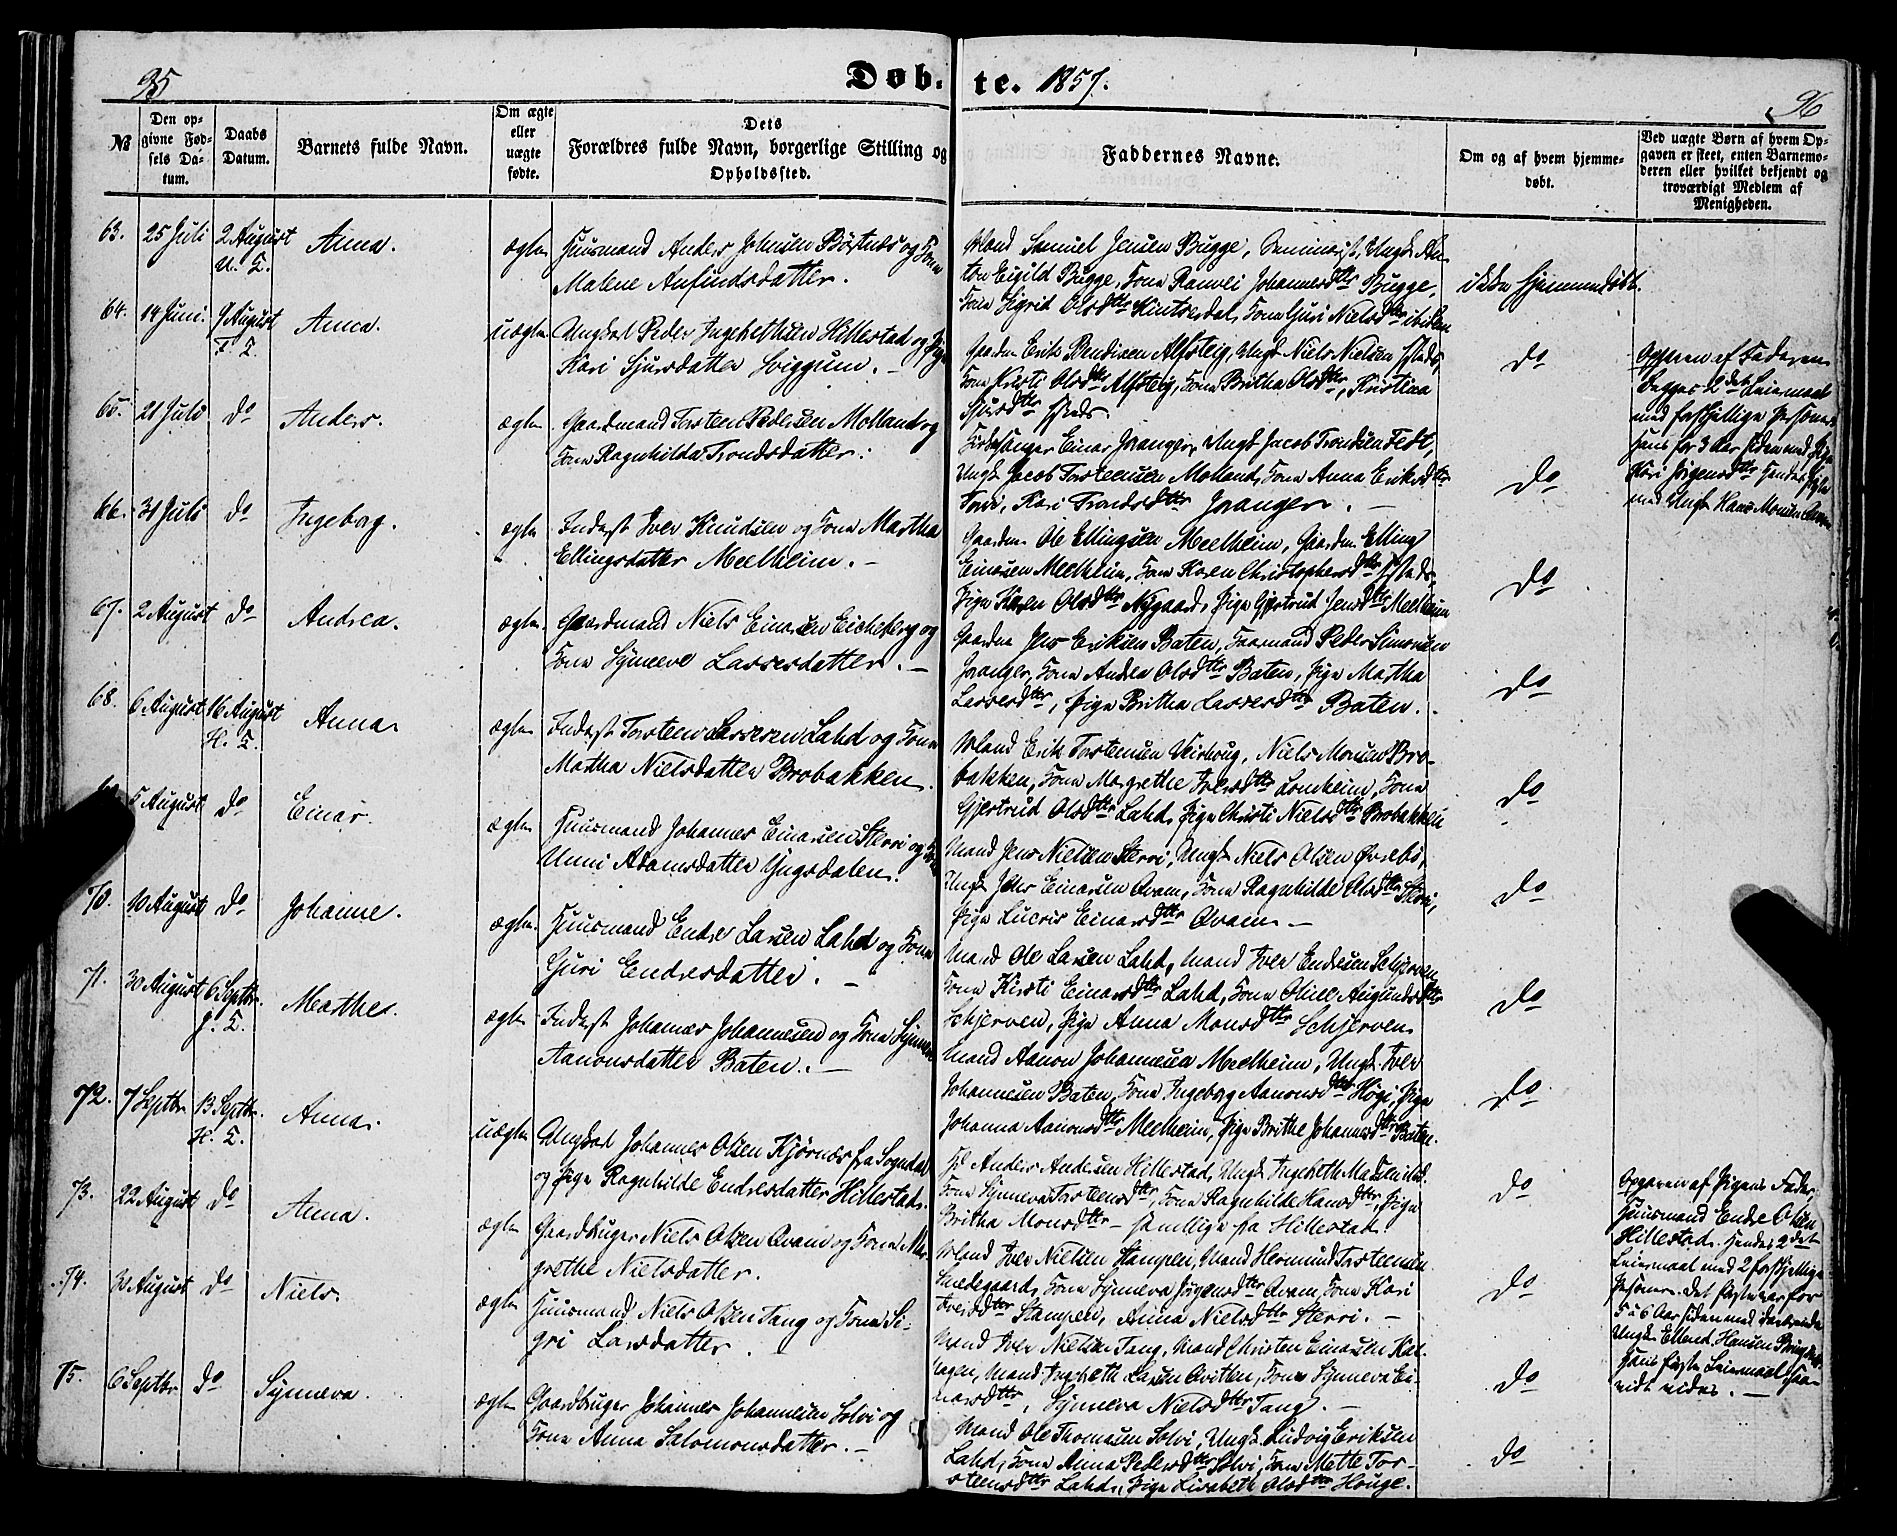 95
Døb-
te. 1857.
96
№
Den op-
givne Fød-
sels Da-
tum.
Daabs
Datum.
Barnets fulde Navn.
Om ægte
eller
uægte
fødte.
Dets
Forældres fulde Navn, borgerlige Stilling og
Opholdssted.
Faddernes Navne.
Om og af hvem hjemme-
døbt.
Ved uægte Børn af hvem Op-
gaven er skeet, enten Barnemo-
deren eller hvilket bekjendt og
troværdigt Medlem af
Menigheden.
63. 25 Juli 2 August Anna. ægte Huusmand Anders Johnsen Børtnes og Kona
Malene Anfindsdatter.
Mand Samuel Jensen Bugge, Seminarist, Ungk. An-
ton Eigild Bugge, Kona Ranvei Johannesdtr Bugge,
Kona Sigrid Olsdtr Kintsedal, Kona Guri Nielsdtr ibidem
ikke hjemmedøbt.
64. 14 Juni. 9 August Anna. uægte Ungkarl Peder Ingebrethsen Hillestad og Pige
Kari Sjursdatter Hviggum.
Gaardm. Erik Bendixen Alfsteig, Ungk. Niels Nielsen
Kona Kristi Olsdtr Alfsteig, Kona Britha Olsdtr, Kristina
Sjursdtr
do
Opgaven af Faderen
Begges 2det Leiermaal
med forskjellige Personer
Hans for 3 Aar siden med Pige
65. 21 Juli do Anders. ægte Gaardmand Torsteen Pedersen Molland og
Kona Ragnhilda Trondsdatter.
Kirkesanger Einar Joranger, Ungk. Jacob Trondsen Fedt,
Ungk. Jacob Torsteensen Molland, Kona Anna Eriksdtr
Kari Trondsdtr Joranger.
do
66. 31 Juli do Ingeborg. ægte Inderst Iver Knudsen og Kona Martha
Ellingsdatter Meelheim.
Gaardm. Ole Ellingsen Meelheim, Gaardm. Elling
Einarsen Meelheim, Kona Karen Christophersdtr
Pige Karen Olsdtr Nygaard, Pige Gjertrud Jensdtr Meelheim
do
67. 2 August do Andrea. ægte Gaardmand Niels Einarsen Eicheberg og
Kona Synneve Lassesdatter.
Gaardm. Jens Eriksen Baten, Peder Simonsen
Joranger, Kona Andrea Olsdtr Baten, Pige Martha
Lassesdtr, Pige Britha Lassesdtr Baten.
do
68. 6 August 16 August Anna. ægte Inderst Torsteen Lassesen Lahd og Kona
Martha Nielsdatter Brobakken.
Mand Erik Torsteensen Veirboug, Niels Monsen Bro-
bakken, Kona Margrethe Iversdtr Lomheim, Kona
Gjertrud Olsdtr Lahd, Pige Christi Nielsdtr Brobakken
do
5 August do Einar. ægte Huusmand Johannes Einarsen Sterri og Kona
Unni Adamsdatter Yngsdalen.
Mand Jens Nielsen Sterri, Ungk. Niels Olsen Øvrebø,
Ungk. Jens Einarsen Qvam, Kona Ragnhilde Olsdtr Sterri,
Pige Lucris Einarsdtr Qvam.
do
70. 10 August do Johanne. ægte Huusmand Endre Larsen Lahd og Kona
Guri Endresdatter.
Mand Ole Larsen Lahd, Mand Iver Endresen Schjerven
Kona Kirsti Einarsdtr Lahd, Kona Oline Augundsdtr
Schjerven, Pige Anna Monsdtr Schjerven
do
71. 30 August 6 Septbr. Marthe. ægte Inderst Johannes Johannesen og Kona Synneve
Aanonsdatter Baten.
Mand Aanon Johannesen Meelheim, Ungk. Iver
Johannesen Baten, Kona Ingeborg Aanonsdtr Høgi, Pige
Johanna Aanonsdtr Meelheim, Pige Brithe Johannesdtr Baten.
do
72. 7 Septbr 13 Septbr. Anna. uægte Ungkarl Johannes Olsen Kjørnæs fra Sogndal
og Pige Ragnhilde Endresdatter Hillestad.
Anders Andersen Hillestad, Ungk. Ingebreth Madsen
Kona Synneva Torsteensdtr, Kona Ragnhilde Hansdtr, Pige
Britha Monsdtr – samtlige fra Hillestad
do
Opgaven af Pigens Fader,
Huusmand Endre Olsen
Hillestad. Hendes 2det
Leiermaal med 2 forskjellige
Personer. Det første var for
5 a 6 Aar siden med
Ungk. Ellend Hansen
Hans første Leiermaal saa-
vidt vides.
73. 22 August do Anna. ægte Gaardbruger Niels Olsen Qvam og Kona Mar-
grethe Nielsdatter.
Mand Iver Nielsen Stampen, Mand Hermund Torsteensen
Smedegaard, Kona Synneva Jørgensdtr Qvam, Kona Kari
Iversdtr Stampen, Anna Nielsdtr Sterri.
do
74. 30 August do Niels. ægte Huusmand Niels Olsen Tang og Kona Si-
gri Larsdatter.
Mand Iver Nielsen Tang, Mand Christen Einarsen Kal-
hagen, Mand Ingebreth Larsen Qvitten, Kona Synneva Ei-
narsdtr, Synneva Nielsdtr Tang.
do
75. 6 Septbr do Synneva. ægte Gaardbruger Johannes Johannesen Solvi og
Kona Anna Salomonsdatter.
Mand Ole Thomasen Solvi, Ungk. Ludvig Eriksen
Lahd, Kona Anna Pedersdtr Solvi, Kona Mette Tor-
steensdtr Lahd, Pige Lisabeth Olsdtr Houge.
do